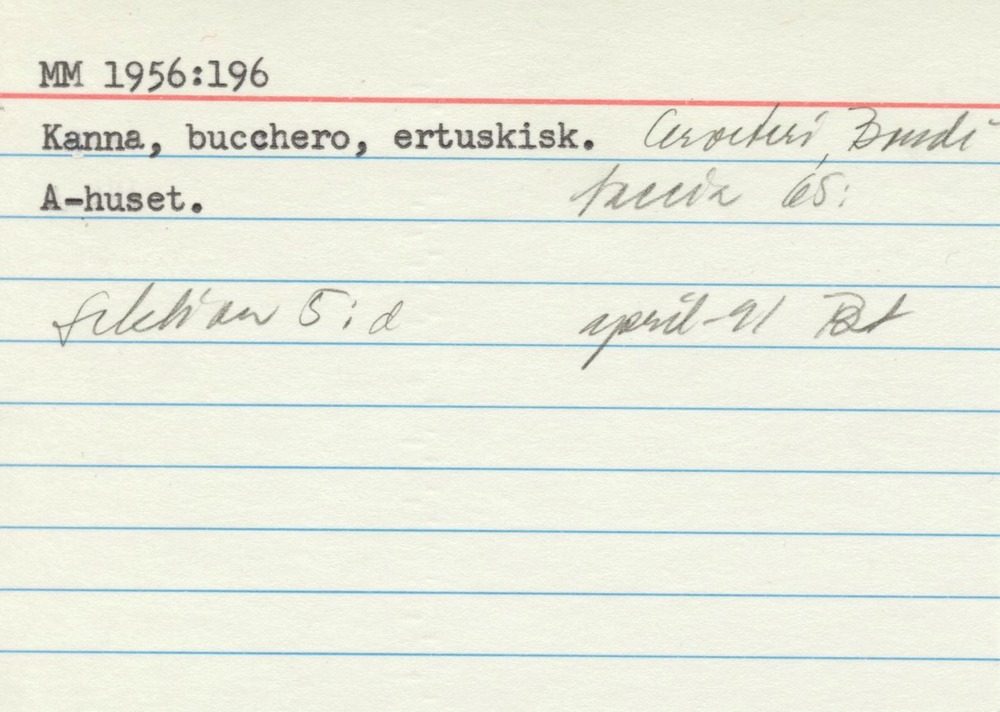 MM 1956:196
Kanna, bucchero, ertuskisk. Cerveteri, Bandi
A-huset. taccia 65:
Sektion 5:d april -91